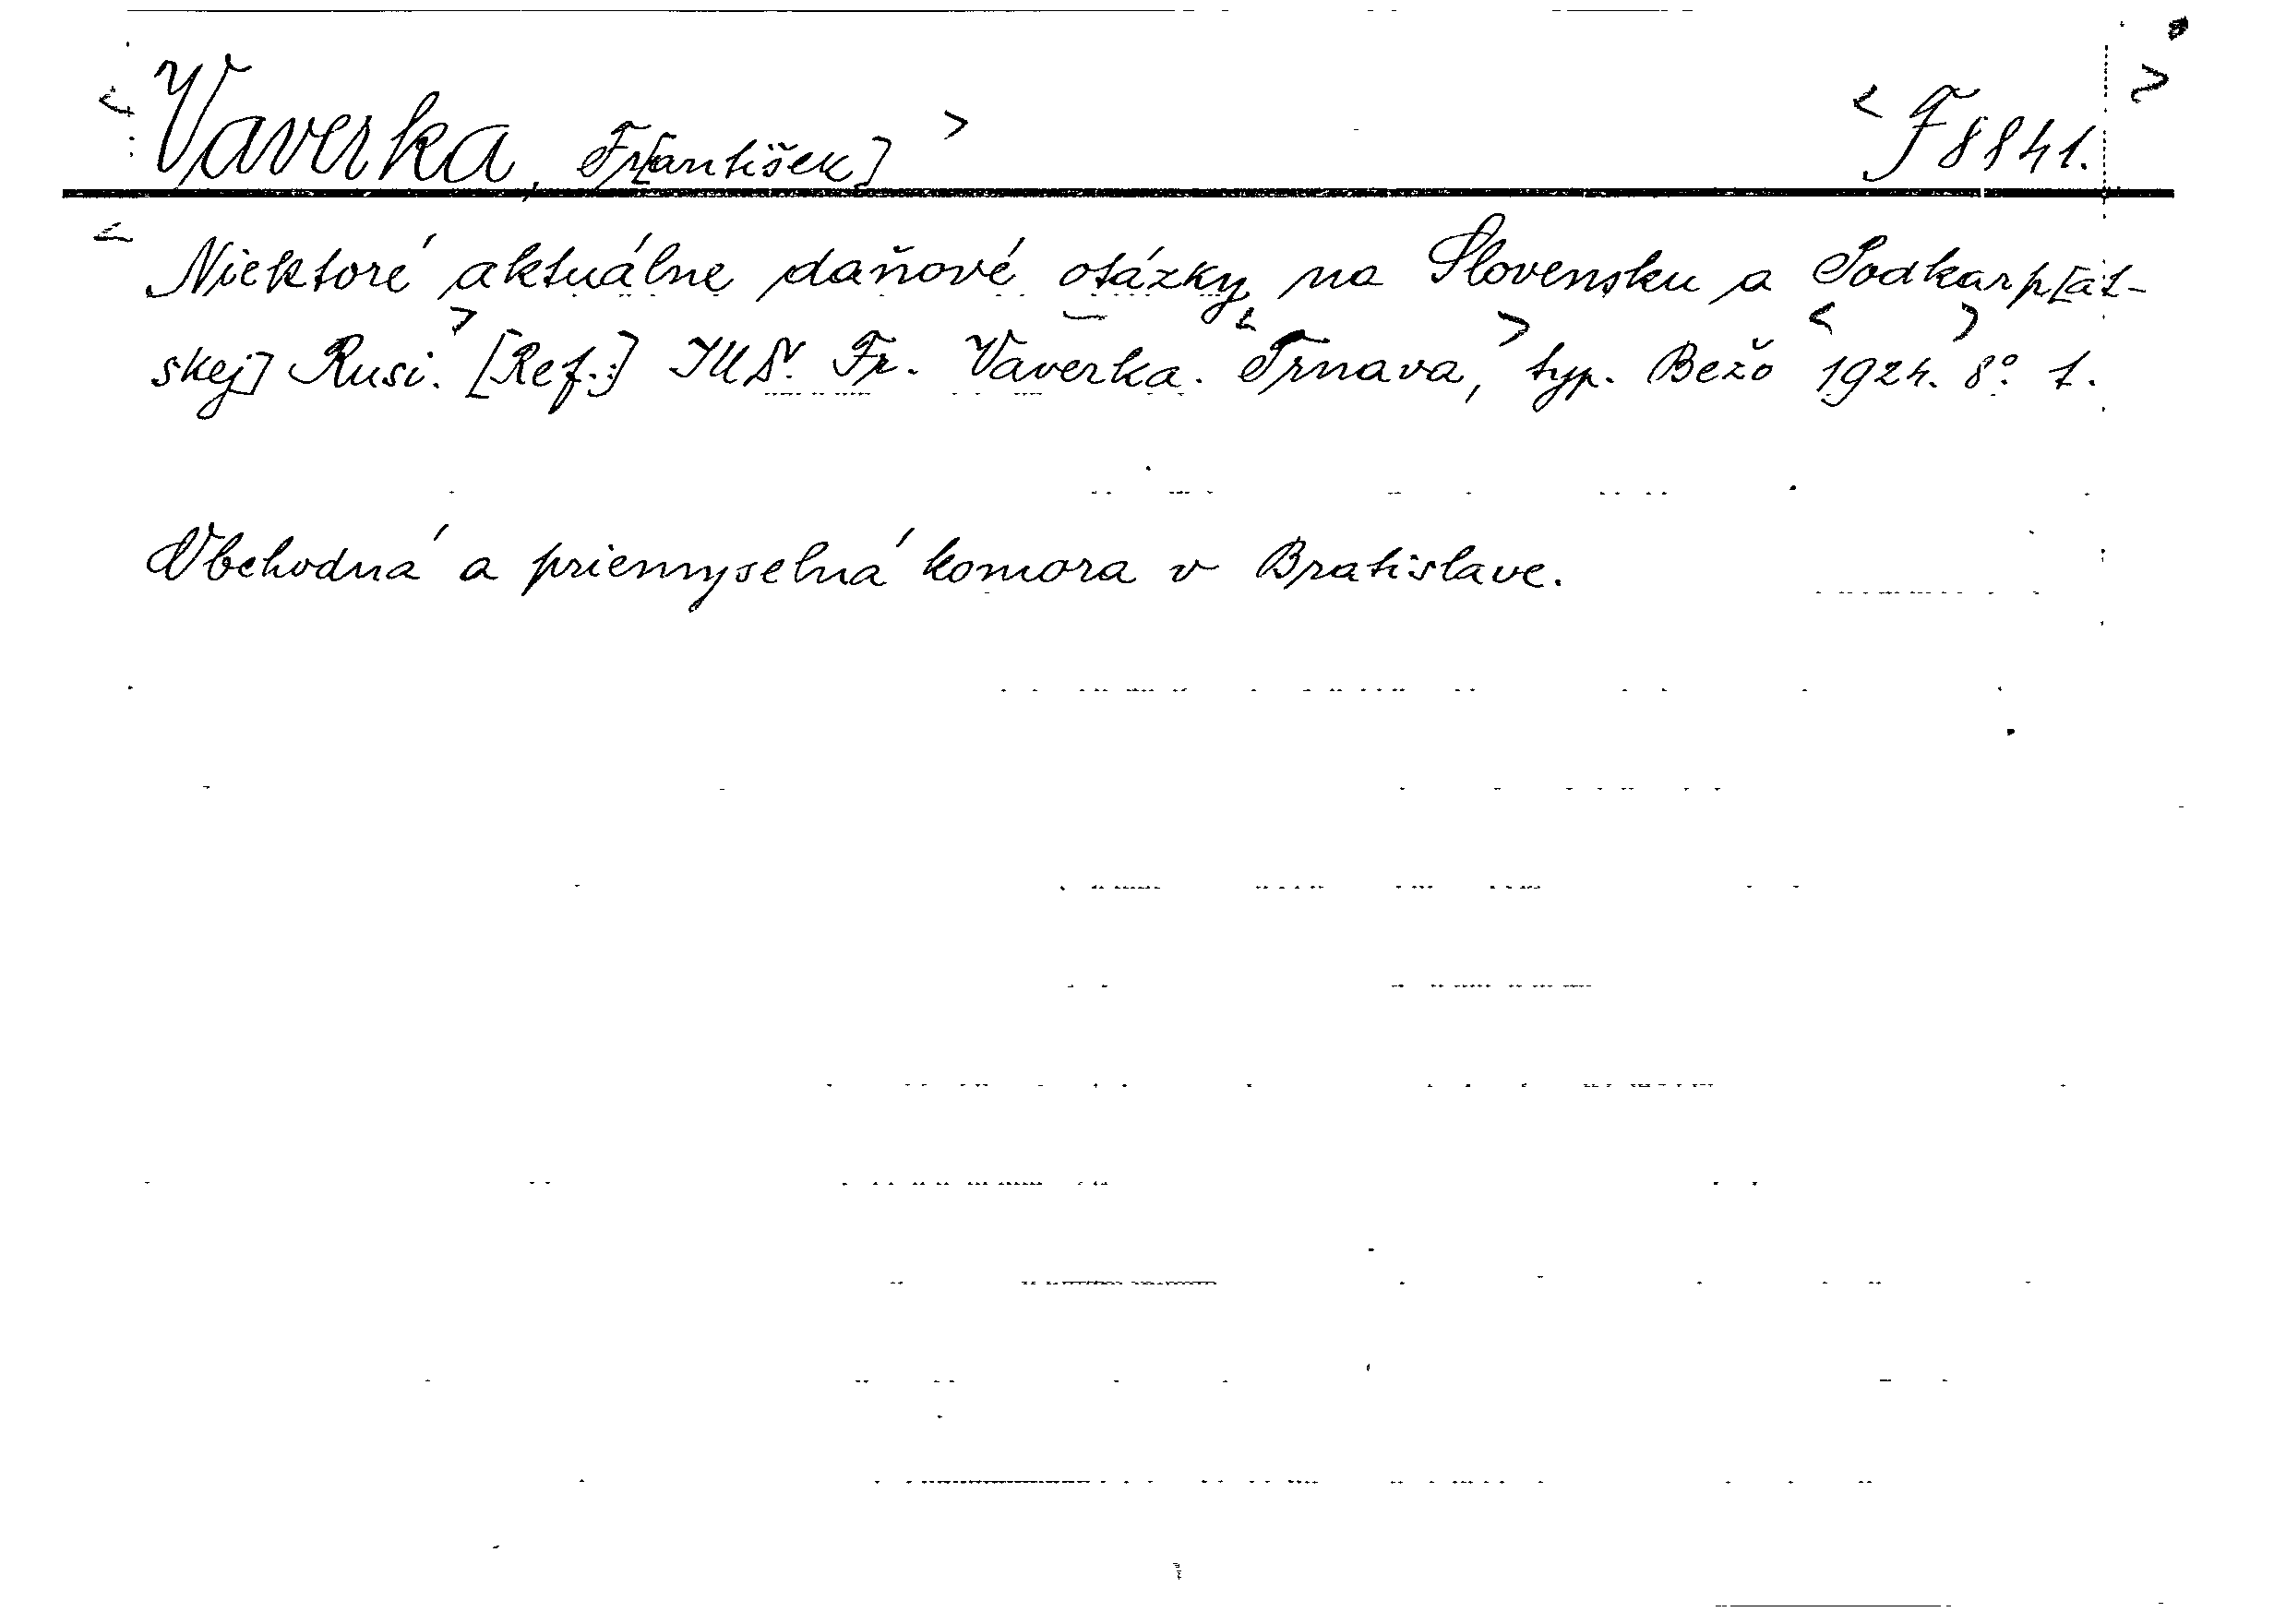 <Vaverka, Fr[antišek]> <F 8841.>
<Niektoré aktuálne daňové otázky na Slovensku a Podkarp[at-
skej] Rusi.> [Ref.:] JUDr. Fr. Vaverka. <Trnava,> typ. Bežo <1924.> 8°. 1.
Obchodná a priemyselná komora v Bratislave.